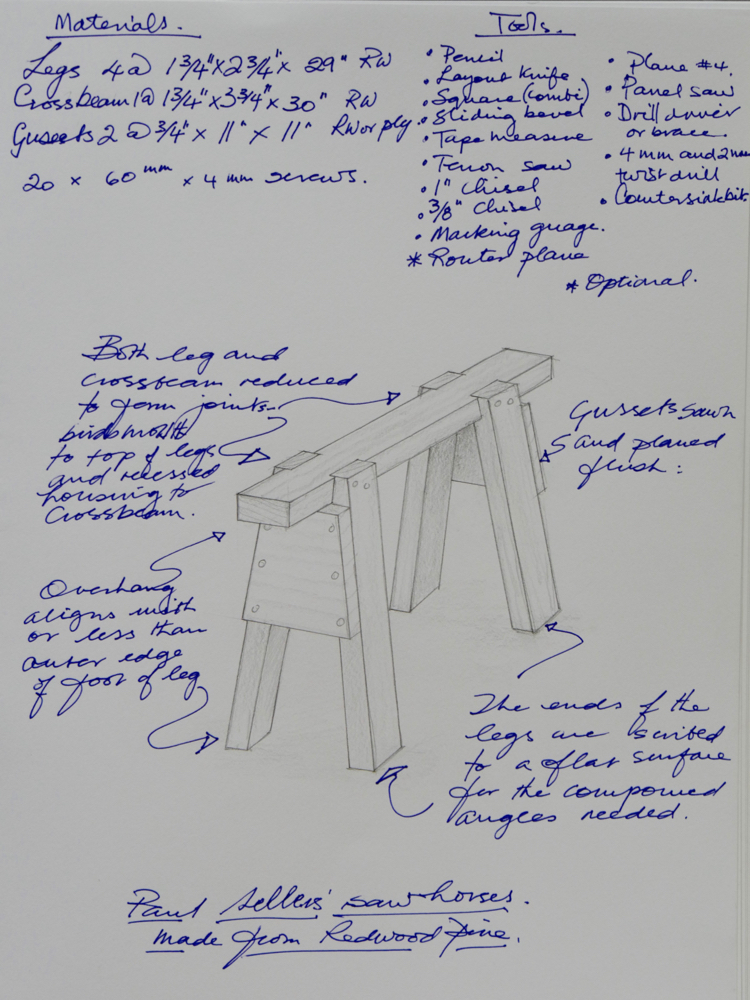 Materials.
Legs 4@ 1 3/4" x 2 3/4" x 29" RW
Crossbeam 1@ 1 3/4" x 3 3/4" x 30" RW
Gussets 2 @ 3/4" x 11" x 11" RW or ply.
20 x 60 mm x 4 mm screws.
Tools.
• Pencil
• Layout Knife
• Square (combi)
• Sliding bevel
• Tape measure
• Tenon saw
• 1" Chisel
• 3/8" Chisel
• Marking guage.
* Router plane
• Plane #4.
• Panel saw
• Drill driver
or brace.
• 4 mm and 2 mm
twist drill
• Countersink bit.
* Optional.
Both leg and
crossbeam reduced
to form joints-
birdsmouth
to top of legs
and recessed
housing to
Crossbeam.
Gussets sawn
and planed
flush:
Overhang
aligns with
or less than
outer edge
of foot of leg
The ends of the
legs are scribed
to a flat surface
for the compound
angles needed.
Paul Sellers' sawhorses.
made from Redwood Pine.